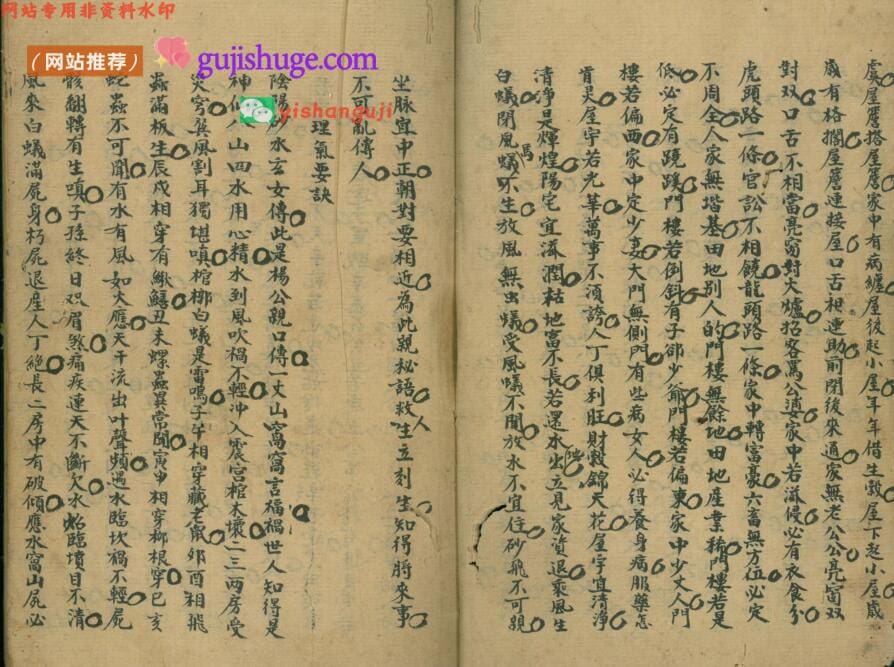 网站专用非资料水印
(网站推荐)
gujishuge.com
yishanguji
處屋簷搭屋簷家中有病纏屋後起小屋年年借生穀屋下起小屋歲
歲有格攔屋簷連接屋口舌相連助前閉後來通家無老公公亮窗双
對双口舌不相當亮窗對大爐招客罵公婆家中若滋侵必有衣食分
虎頭路一條官訟不相饒龍頭路一條家中轉富豪六畜無方位必定
不周全人家無堦基田地別人的門樓無餘地田地産業稀門樓若是
低必定有蹺蹊門樓若倒斜有子郤少爺門樓若偏東家中少丈人門
樓若偏西家中定少妻大門無側門有些病女人必得養身病服藥怎
肯灵屋宇若光華萬事不須誇人丁俱利旺財穀錦天花屋宇宜清淨
清淨是煇煌陽宅宜滋潤枯地富不長若還水出立見家資退乘風生
白蟻閉風蟻不生放風無虫蟻受風蟻不開放水不宜往砂飛不可親
坐脉宜中正朝對要相近為此親秘語救人生立刻生知得將來事
不可亂傳人
理氣要訣
陰陽砂水玄女傳此是楊公親口傳一丈山窩窩言福禍世人知得是
神仙 山四水用心精水到風吹禍不輕冲入震宮棺木壞一二三兩房受
災穹巽風割耳獨堪嗔棺槨白蟻是雷鳴子午相穿藏老鼠卯酉相飛
蟲滿板生辰戌相穿有鰍鱔丑未螺蟲異常聞寅申相穿槨根穿巳亥
蛇蟲不可聞有水有風如大應天干流出叶聲頻遇水臨坎禍不輕屍
骸翻轉有生嗔子孫終日双眉煞痛疾連天不斷欠水 臨墳目不清
風來白蟻滿屍身朽屍退産人丁絕長二房中有破傾應水窩山屍必